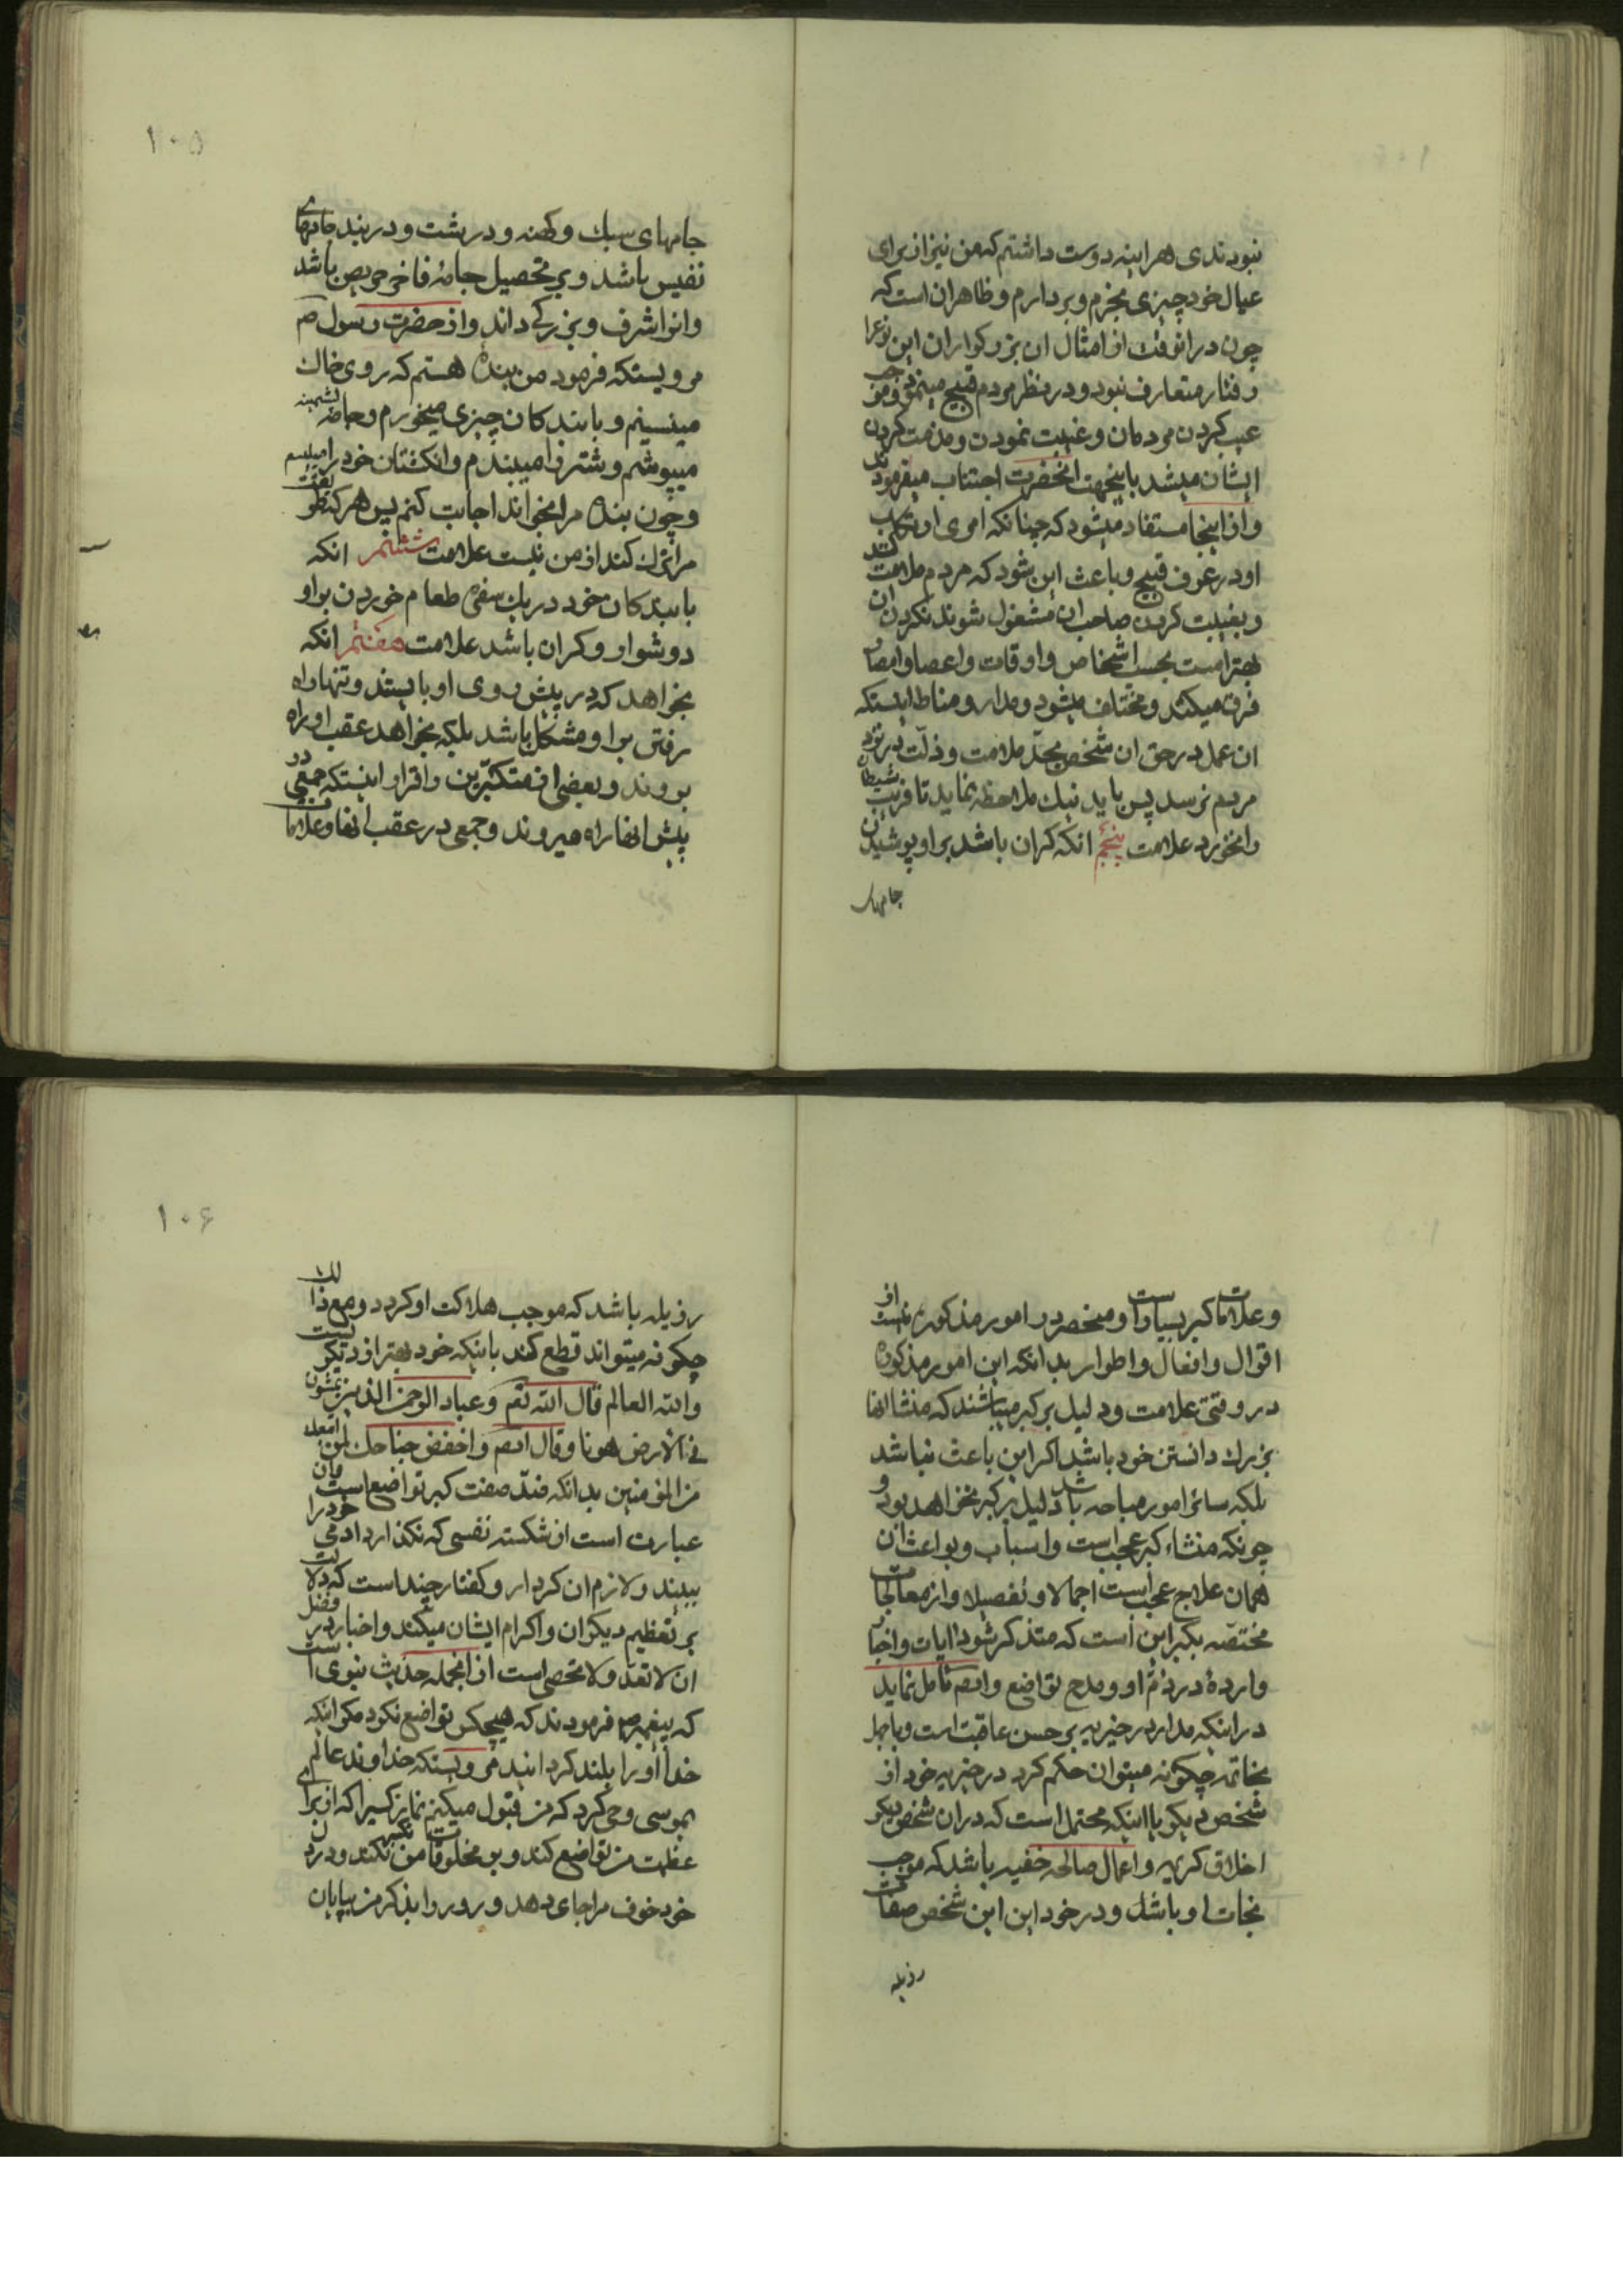 نبودندی هراینه دوست داشتم که من نیز از برای
عیال خود چیزی بخرم و بردارم و ظاهر ان است که
چون در انوقت از امثال ان بزرکواران این نوع را
رفتار متعارف نبود و در نظر مردم قبیح مینمود و موجب
عیب کردن مردمان و غیبت نمودن و مذمت کردن
ایشان میشد باینجهت انحضرت اجتناب میفرمودند
و از اینجا مستفاد میشود که چنانکه امری ارتکاب
او در عرف قبیح و باعث این شود که مردم ملامت کنند
و بغیبت کردن صاحب ان مشغول شوند نکردن ان
بهتر است بحسب اشخاص و اوقات و اعصار و امصار
فرق میکند و مختلف میشود و مدار و مناط اینستکه
ان عمل در حق ان شخص بحد ملامت و ذلت در نزد
مردم نرسد پس باید نیک ملاحظه نماید تا فریب شیطان
را نخورد علامت پنجم انکه کران باشد بر او پوشیدن
جامهای
۱۰۵
جامهای سبک و کهنه و درشت و در بند جامهای
نفیس باشد و بر تحصیل جامهٔ فاخر حریص باشد
و انرا شرف و بزرکی داند و از حضرت رسول ص
مرویستکه فرمود من بنده هستم که بر روی خاک
مینشینم و با بندکان چیزی میخورم و جامه پشمینه
میپوشم و شتر را میبندم و انکشتان خود را میلیسم
و چون بنده مرا بخواند اجابت کنم پس هرکه طریقت
مرا ترک کند از من نیست علامت ششم انکه
با بندکان خود در یک سفره طعام خوردن بر او
دوشوار و کران باشد علامت هفتم انکه
بخواهد که در پیش روی او بایستند و تنها راه
رفتن بر او مشکل باشد بلکه بخواهد عقب او راه
بروند و بعضی از متکبرین را قرار اینستکه جمعی در
پیش انها راه میروند و جمعی در عقب انها و علامات
و علامات کبر بسیار است و منحصر در امور مذکوره نیست از
اقوال و افعال و اطوار بدانکه این امور مذکوره
در وقتی علامت و دلیل بر کبر میباشند که منشا انها
بزرک دانستن خود باشد اکر این باعث نباشد
بلکه سائر امور مباحه باشد دلیل بر کبر نخواهد بود و
چونکه منشاء کبر عجب است و اسباب و بواعث ان
همان علاج عجب است اجمالا و تفصیلا و از معالجات
مختصه بکبر این است که متذکر شود ایات و اخبار
واردهٔ در ذم او و مدح تواضع و ایضا تامل نماید
در اینکه مدار بر خیریه بر حسن عاقبت است و با جهل
بخاتمه چکونه میتوان حکم کرد در خیریه خود از
شخص دیکر با اینکه محتمل است که در ان شخص دیکر
اخلاق کریمه و اعمال صالحه خفیه باشد که موجب
نجات او باشد و در خود این این شخص صفات
رذیله
۱۰۶
رذیله باشد که موجب هلاکت او کردد و مع ذلک
چکونه میتواند قطع کند باینکه خود بهتر از دیکریست
والله العالم قال الله تعم وعباد الرحمن الذین یمشون
فی الارض هونا وقال ایضم واخفض جناحک لمن اتبعک
من المؤمنین بدانکه ضد صفت کبر تواضع است و ان
عبارت است از شکسته نفسی که نکذارد ادمی خود را
ببیند و لازم ان کردار و کفتار چند است که دلالت
بر تعظیم دیکران و اکرام ایشان میکند و اخبار در فضل
ان لا تعد و لا تحصی است از انجمله حدیث نبوی است
که پیغمبر ص فرمودند که هیچکس تواضع نکرد مکر اینکه
خدا او را بلند کردانید مرویستکه خداوند عالم
بموسی وحی کرد که من قبول میکنم نماز کسیرا که از برای
عظمت من تواضع کند و بر مخلوقات من تکبر نکند و در دل
خود خوف مرا جای دهد و روز را بذکر من بپایان